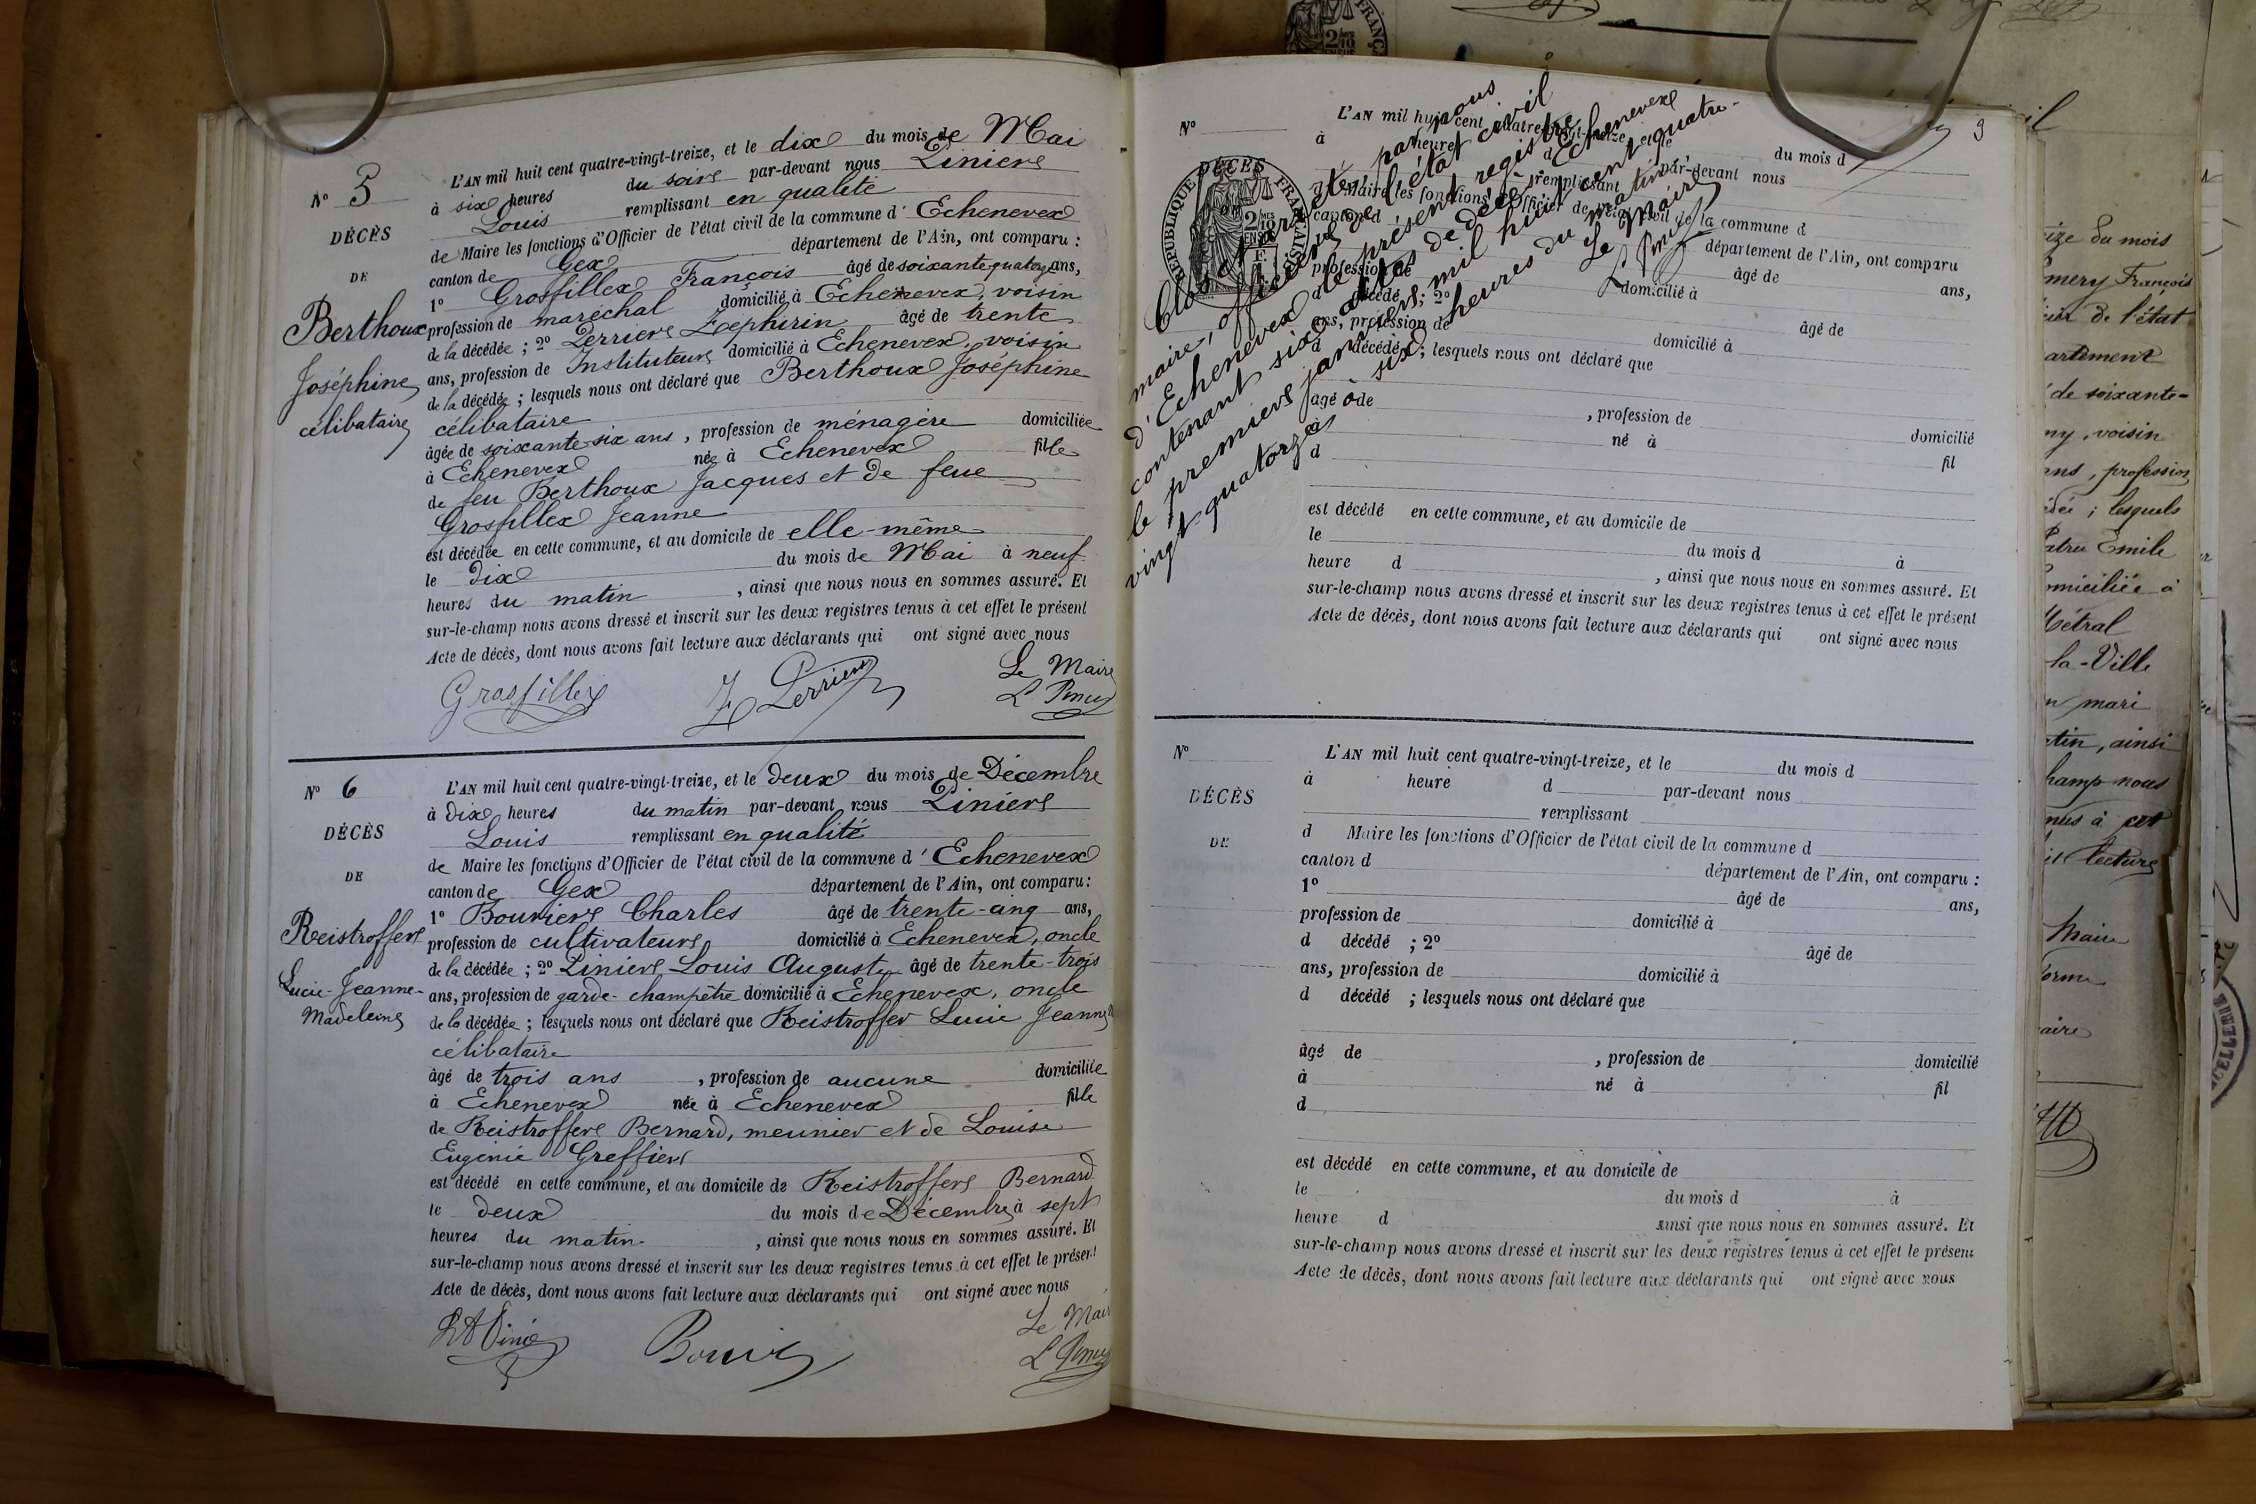 N° 5
DÉCÈS
DE
Berthoux
Joséphine
célibataire
L'AN mil huit cent quatre-vingt-treize, et le dix du mois de Mai
à six heures du soir par-devant nous Pinier
Louis remplissant en qualité
de Maire les fonctions d'Officier de l'état civil de la commune d'Echenevex
canton de Gex département de l'Ain, ont comparu :
1° Grosfillex François âgé de soixante quatorze ans,
profession de maréchal domicilié à Echenevex, voisin
de la décédée ; 2° Perrier Zéphirin âgé de trente
ans, profession de Instituteur domicilié à Echenevex, voisin
de la décédée ; lesquels nous ont déclaré que Berthoux Joséphine
célibataire
âgée de soixante-six ans, profession de ménagère domiciliée
à Echenevex née à Echenevex fille
de feu Berthoux Jacques et de feue
Grosfillex Jeanne
est décédée en cette commune, et au domicile de elle-même
le dix du mois de Mai à neuf
heures du matin, ainsi que nous nous en sommes assuré. Et
sur-le-champ nous avons dressé et inscrit sur les deux registres tenus à cet effet le présent
Acte de décès, dont nous avons fait lecture aux déclarants qui ont signé avec nous
Grosfillex Z Perrier Le Maire
N° 6
DÉCÈS
DE
Reistroffer
Lucie-Jeanne-
Madeleine
L'AN mil huit cent quatre-vingt-treize, et le deux du mois de Décembre
à dix heures du matin par-devant nous Pinier
Louis remplissant en qualité
de Maire les fonctions d'Officier de l'état civil de la commune d'Echenevex
canton de Gex département de l'Ain, ont comparu :
1° Bouvier Charles âgé de trente-cinq ans,
profession de cultivateur domicilié à Echenevex, oncle
de la décédée ; 2° Pinier Louis Auguste âgé de trente-trois
ans, profession de garde-champêtre domicilié à Echenevex, oncle
de la décédée ; lesquels nous ont déclaré que Reistroffer Lucie Jeanne
célibataire
âgé de trois ans, profession de aucune domiciliée
à Echenevex née à Echenevex fille
de Reistroffer Bernard, meunier et de Louise
Eugénie Greffier
est décédé en cette commune, et au domicile de Reistroffer Bernard
le deux du mois de Décembre à sept
heures du matin, ainsi que nous nous en sommes assuré. Et
sur-le-champ nous avons dressé et inscrit sur les deux registres tenus à cet effet le présent
Acte de décès, dont nous avons fait lecture aux déclarants qui ont signé avec nous
Le Mai
3
N°
DÉCÈS
RÉPUBLIQUE FRANÇAISE
L'AN mil huit cent quatre-vingt-treize, et le du mois d
à heure d par-devant nous
remplissant
d Maire les fonctions d'Officier de l'état civil de la commune d
canton d département de l'Ain, ont comparu
âgé de ans,
profession de domicilié à
d décédé ; 2° âgé de
ans, profession de domicilié à
d décédé ; lesquels nous ont déclaré que
âgé de , profession de domicilié
à né à fil
d
est décédé en cette commune, et au domicile de
le du mois d à
heure d , ainsi que nous nous en sommes assuré. Et
sur-le-champ nous avons dressé et inscrit sur les deux registres tenus à cet effet le présent
Acte de décès, dont nous avons fait lecture aux déclarants qui ont signé avec nous
Clos et arrêté par nous
maire, officier de l'état civil
d'Echenevex le présent registre
contenant six actes de décès Echenevex
le premier janvier mil huit cent quatre-
vingt-quatorze à six heures du matin
Le Maire
N°
DÉCÈS
DE
L'AN mil huit cent quatre-vingt-treize, et le du mois d
à heure d par-devant nous
remplissant
d Maire les fonctions d'Officier de l'état civil de la commune d
canton d département de l'Ain, ont comparu :
1° âgé de ans,
profession de domicilié à
d décédé ; 2° âgé de
ans, profession de domicilié à
d décédé ; lesquels nous ont déclaré que
âgé de , profession de domicilié
à né à fil
d
est décédé en cette commune, et au domicile de
le du mois d à
heure d ainsi que nous nous en sommes assuré. Et
sur-le-champ nous avons dressé et inscrit sur les deux registres tenus à cet effet le présent
Acte de décès, dont nous avons fait lecture aux déclarants qui ont signé avec nous
du mois
François
de l'état
de soixante-
voisin
profession
lesquels
Emile
à
Métral
la-Ville
mari
ainsi
nous
à cet
lecture
Maire